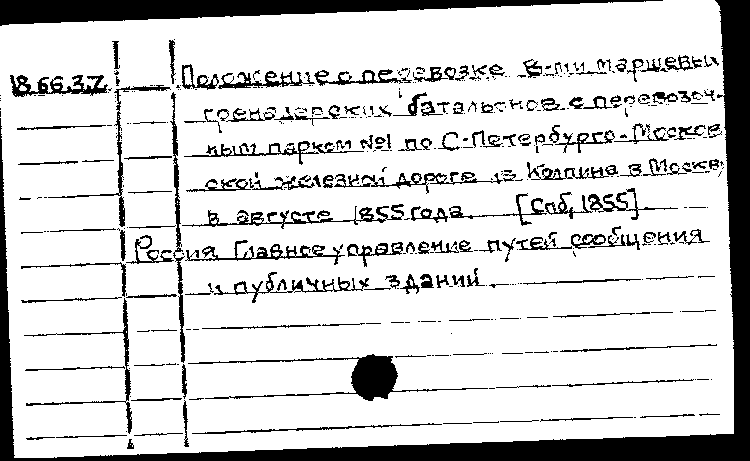 18.66.3.7. Положение о перевозке 8-ми маршевы
гренадерских батальонов с перевозоч-
ным парком №1 по С-Петербурго-Москов
ской железной дороге из Колпина в Москв
в августе 1855 года. [Спб, 1855].
Россия Главное управление путей сообщения
и публичных зданий.